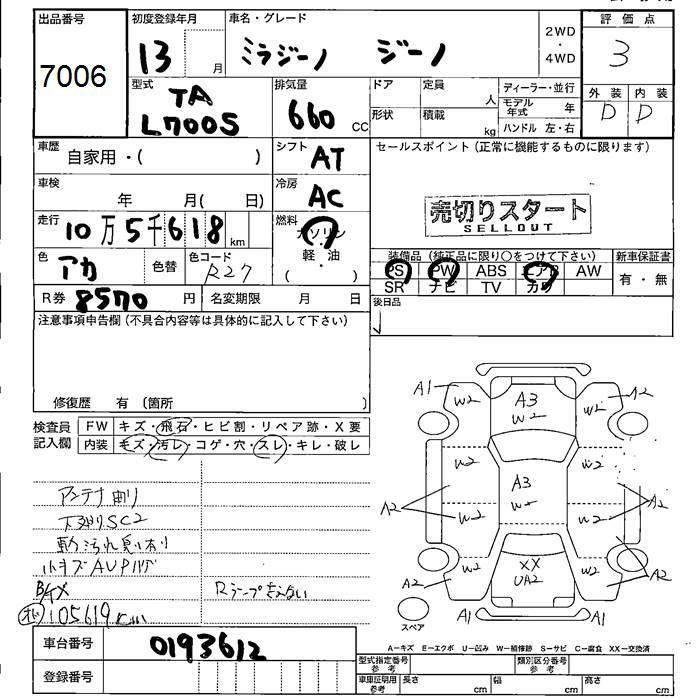 出品番号
7006
初度登録年月
13 月
車名・グレード
ミラジーノ ジーノ
2WD
・
4WD
評価点
3
外装 内装
D D
型式
TA
L700S
排気量
660 CC
ドア
定員
人
形状
積載
kg
ディーラー・並行
モデル年式 年
ハンドル 左・右
車歴
自家用・( )
シフト
AT
セールスポイント(正常に機能するものに限ります)
車検
年 月( 日)
冷房
AC
売切りスタート
SELLOUT
走行
10万5千618 km
燃料
ガソリン
・
軽・油
( )
色
アカ
色替
色コード
R27
装備品(純正品に限り〇をつけて下さい)
PS PW ABS エアB AW
SR ナビ TV カワ
新車保証書
有・無
R券 8570 円
名変期限 月 日
後日品
注意事項申告欄(不具合内容等は具体的に記入して下さい)
修復歴 有(箇所 )
検査員
記入欄
FW キズ・飛石・ヒビ割・リペア跡・X要
内装 キズ・汚レ・コゲ・穴・スレ・キレ・破レ
アンテナ曲り
下廻りSC2
小キズAUPハゲ
105619km
A1 W2 A3 W2 W2 A2
W2 A3 W2 W2
A2 W2 W2 A2
A2 W2 XX UA2 W2 A2
A1 A1
スペア
A-キズ E-エクボ U-凹み W-補修跡 S-サビ C-腐食 XX-交換済
車台番号 0193612
登録番号
型式指定番号
参考
類別区分番号
参考
車庫証明用
参考
長さ cm
幅 cm
高さ cm